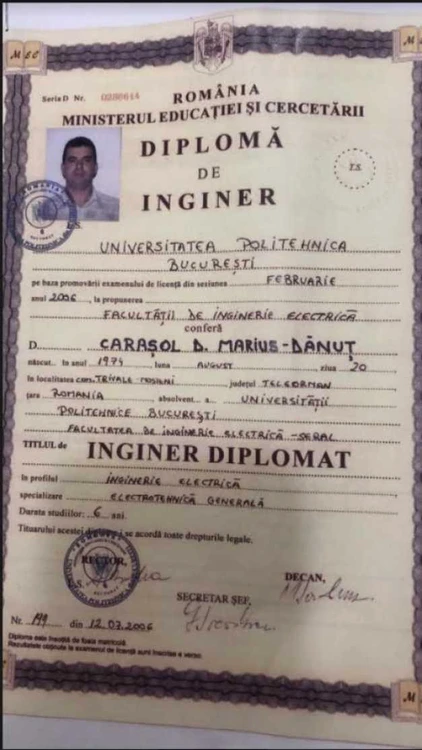 M E C
Seria D Nr. 0280644
ROMÂNIA
MINISTERUL EDUCAȚIEI ȘI CERCETĂRII
DIPLOMĂ
DE
INGINER
T.S.
UNIVERSITATEA POLITEHNICA
BUCUREȘTI
pe baza promovării examenului de licență din sesiunea FEBRUARIE
anul 2006, la propunerea
FACULTĂȚII DE INGINERIE ELECTRICĂ
conferă
D. CARAȘOL D. MARIUS-DĂNUȚ
născut.. în anul 1974, luna AUGUST ziua 20
în localitatea com. TRIVALE MOȘTENI județul TELEORMAN
țara ROMANIA, absolvent.. a.. UNIVERSITĂȚII
POLITEHNICE BUCUREȘTI
FACULTATEA DE INGINERIE ELECTRICĂ - SERAL
TITLUL DE INGINER DIPLOMAT
în profilul INGINERIE ELECTRICĂ
specializare ELECTROTEHNICĂ GENERALĂ
Durata studiilor: 6 ani.
Titularului acestei se acordă toate drepturile legale.
RECTOR,
L.S.
SECRETAR ȘEF,
DECAN,
Nr. 199 din 12.07.2006
Diploma este însoțită de foaia matricolă.
Rezultatele obținute la examenul de licență sunt înscrise a verso.